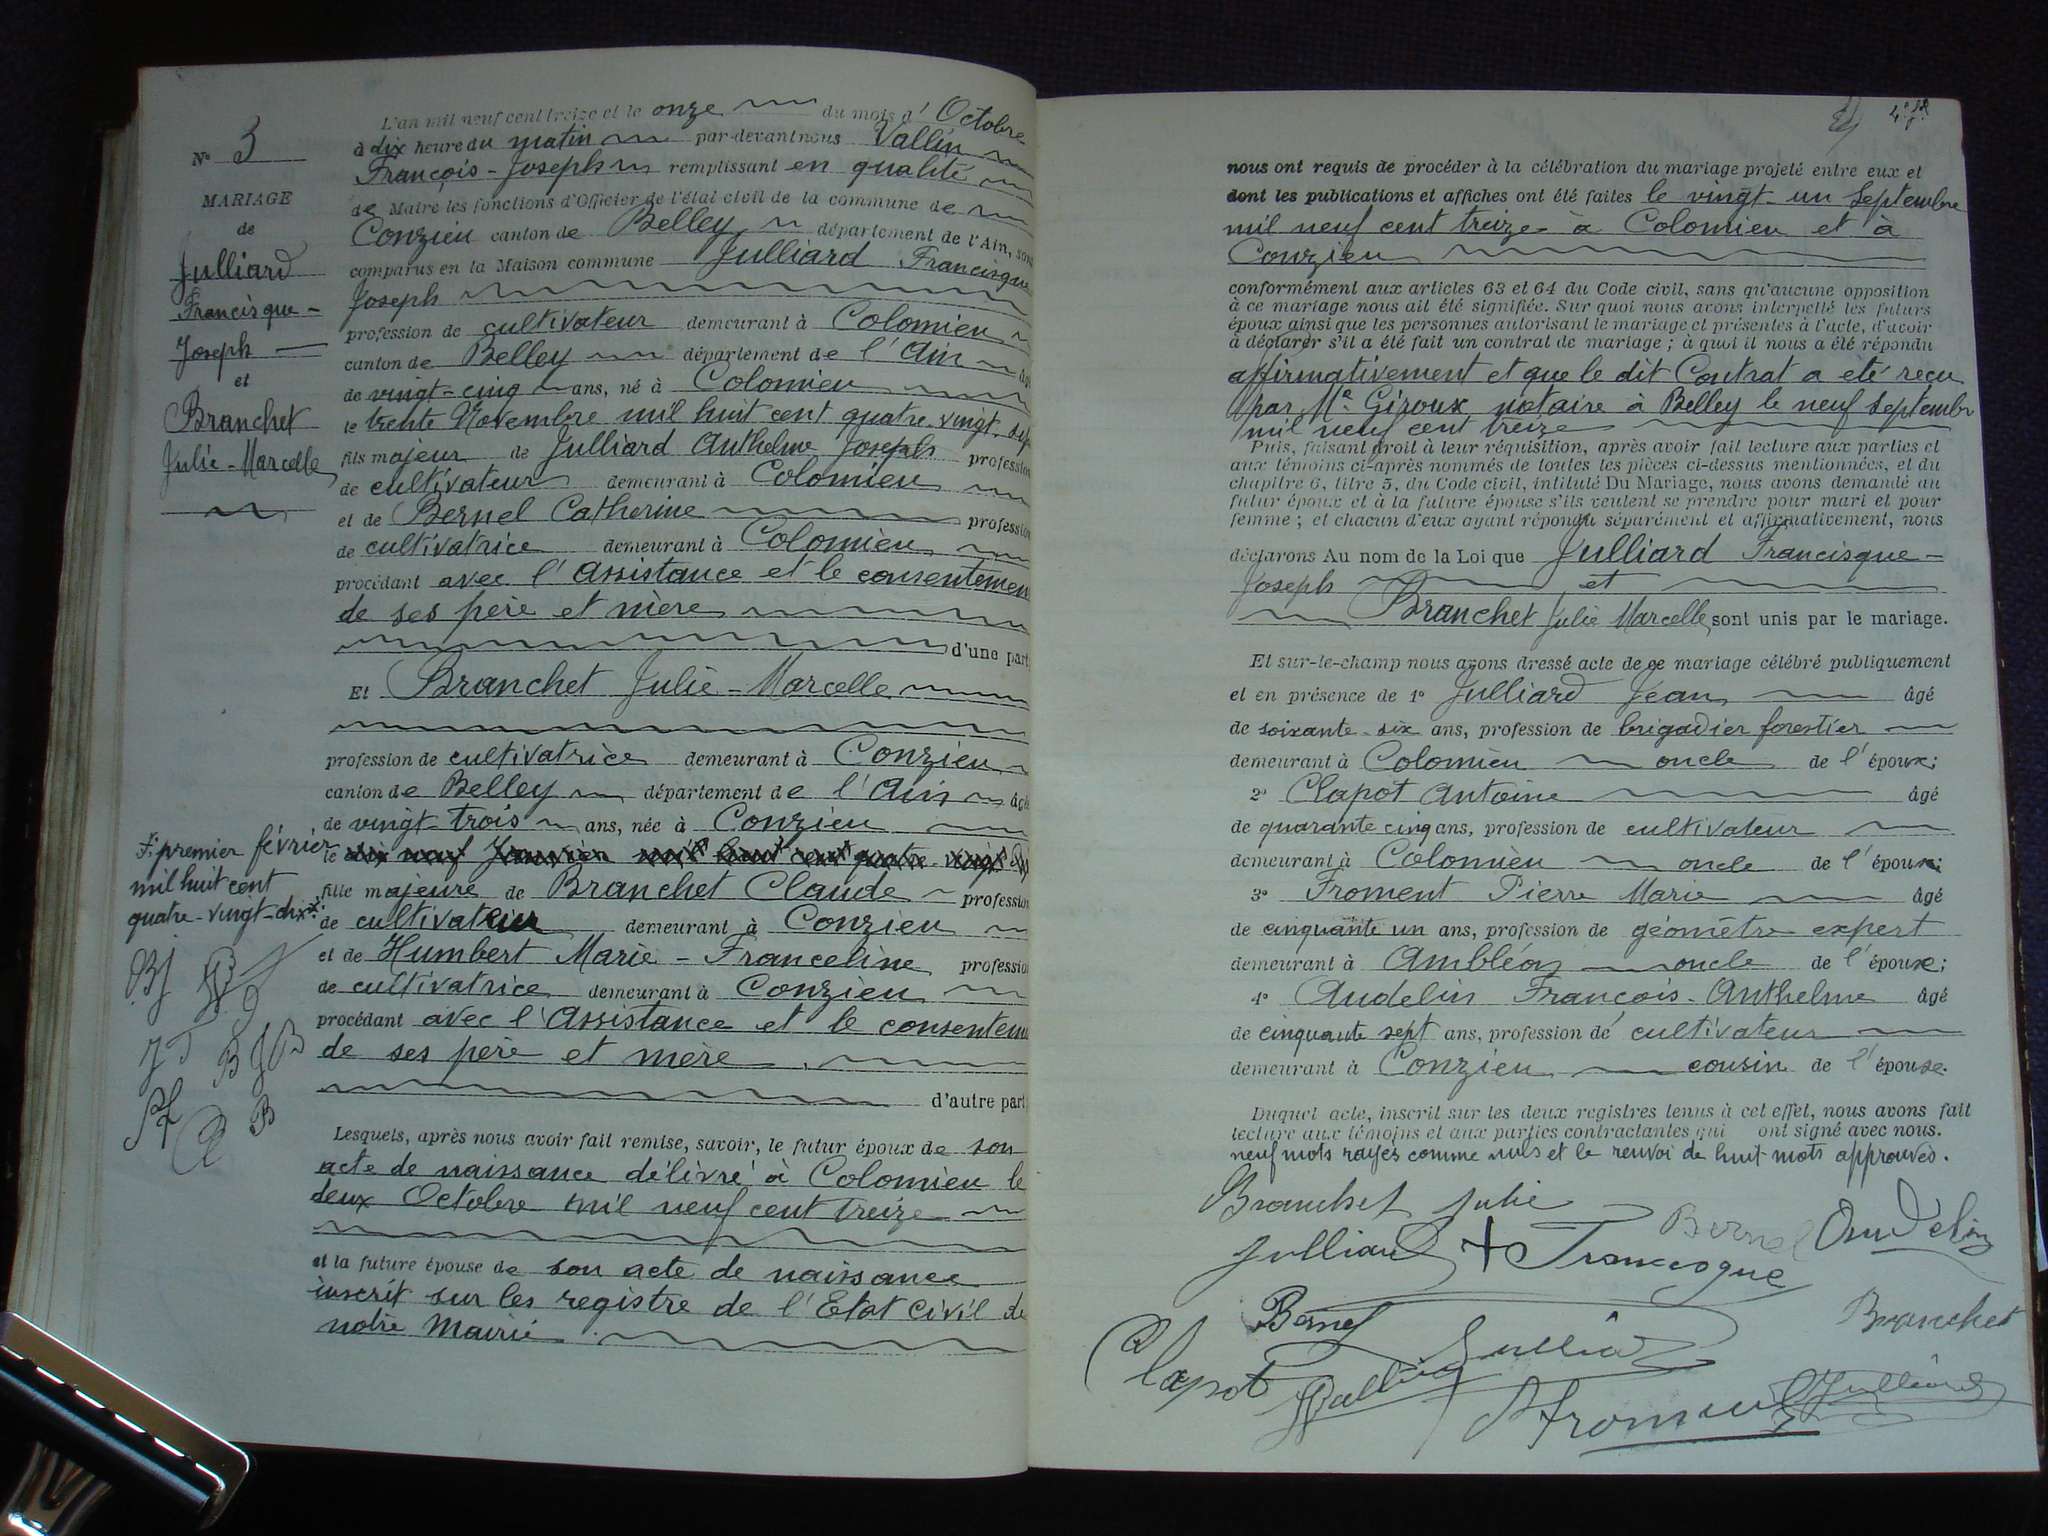 N° 3
MARIAGE
de
Julliard
Francisque-
Joseph
et
Branchet
Julie-Marcelle
L'an mil neuf cent treize et le onze du mois d'Octobre
à dix heure du matin par-devant nous Vallin
François-Joseph remplissant en qualité
de Maire les fonctions d'Officier de l'état civil de la commune de
Conzieu canton de Belley département de l'Ain, sont
comparus en la Maison commune Julliard Francisque
Joseph
profession de cultivateur demeurant à Colomieu
canton de Belley département de l'Ain âgé
de vingt-cinq ans, né à Colomieu
le trente Novembre mil huit cent quatre-vingt-sept
fils majeur de Julliard Anthelme Joseph profession
de cultivateur demeurant à Colomieu
et de Bernel Catherine profession
de cultivatrice demeurant à Colomieu
procédant avec l'Assistance et le consentement
de ses père et mère
d'une part
Et Branchet Julie-Marcelle
profession de cultivatrice demeurant à Conzieu
canton de Belley département de l'Ain âgé
de vingt-trois ans, née à Conzieu
le dix neuf Janvier mil huit cent quatre-vingt dix
F. premier février
mil huit cent
quatre-vingt-dix
fille majeure de Branchet Claude profession
de cultivateur demeurant à Conzieu
et de Humbert Marie-Franceline profession
de cultivatrice demeurant à Conzieu
procédant avec l'Assistance et le consentem
de ses père et mère
d'autre part
BJ
JT BJB
PF B
Lesquels, après nous avoir fait remise, savoir, le futur époux de son
acte de naissance délivré à Colomieu le
deux Octobre mil neuf cent treize
et la future épouse de son acte de naissance
inscrit sur les registre de l'Etat civil de
notre Mairie
nous ont requis de procéder à la célébration du mariage projeté entre eux et
dont les publications et affiches ont été faites le vingt-un Septembre
mil neuf cent treize à Colomieu et à
Conzieu
conformément aux articles 63 et 64 du Code civil, sans qu'aucune opposition
à ce mariage nous ait été signifiée. Sur quoi nous avons interpellé les futurs
époux ainsi que les personnes autorisant le mariage et présentes à l'acte, d'avoir
à déclarer s'il a été fait un contrat de mariage; à quoi il nous a été répondu
affirmativement et que le dit Contrat a été reçu
par Me Giroux notaire à Belley le neuf septembr
mil neuf cent treize
Puis, faisant droit à leur réquisition, après avoir fait lecture aux parties et
aux témoins ci-après nommés de toutes les pièces ci-dessus mentionnées, et du
chapitre 6, titre 5, du Code civil, intitulé Du Mariage, nous avons demandé au
futur époux et à la future épouse s'ils veulent se prendre pour mari et pour
femme; et chacun d'eux ayant répondu séparément et affirmativement, nous
déclarons Au nom de la Loi que Julliard Francisque-
Joseph et
Branchet Julie Marcelle sont unis par le mariage.
Et sur-le-champ nous avons dressé acte de ce mariage célébré publiquement
et en présence de 1° Julliard Jean âgé
de soixante-six ans, profession de brigadier forestier
demeurant à Colomieu oncle de l'époux;
2° Clapot Antoine âgé
de quarante cinq ans, profession de cultivateur
demeurant à Colomieu oncle de l'époux;
3° Froment Pierre Marie âgé
de cinquante un ans, profession de géomètre expert
demeurant à Ambléon oncle de l'épouse;
4° Audelin François-Anthelme âgé
de cinquante sept ans, profession de cultivateur
demeurant à Conzieu cousin de l'épouse.
Duquel acte, inscrit sur les deux registres tenus à cet effet, nous avons fait
lecture aux témoins et aux parties contractantes qui ont signé avec nous.
neuf mots rayés comme nuls et le renvoi de huit mots approuvés.
Branchet Julie
Julliard Francisque Bernel Audelin
Bernel Julliard Branchet
Clapot Vallin Froment Julliard